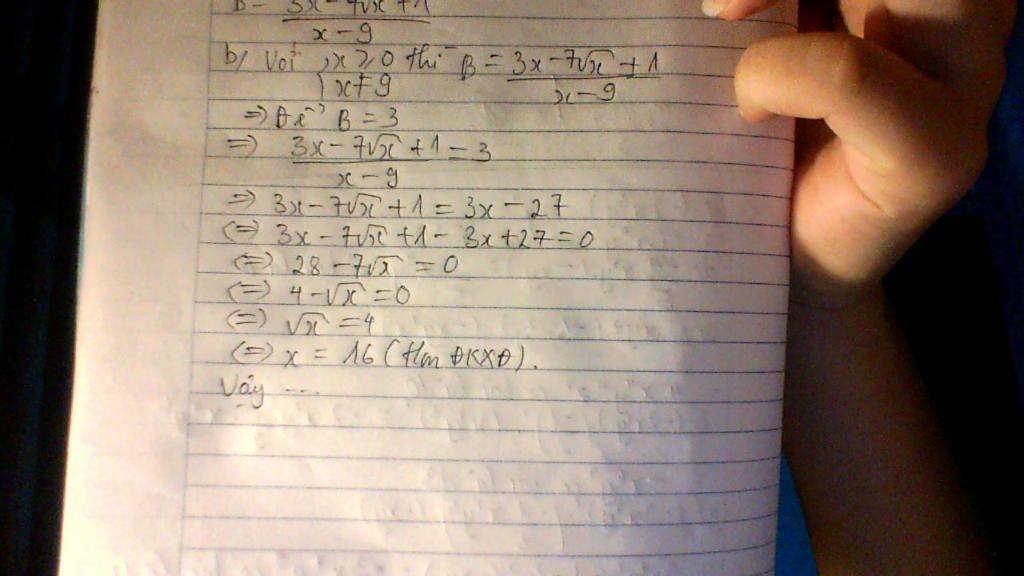 B = 3x - 7√x + 1 / x - 9
b/ Với { x ≥ 0 thì B = 3x - 7√x + 1 / x - 9
{ x ≠ 9
=> Để B = 3
=> 3x - 7√x + 1 / x - 9 = 3
=> 3x - 7√x + 1 = 3x - 27
<=> 3x - 7√x + 1 - 3x + 27 = 0
<=> 28 - 7√x = 0
<=> 4 - √x = 0
<=> √x = 4
<=> x = 16 (tlm ĐKXĐ).
Vậy ...